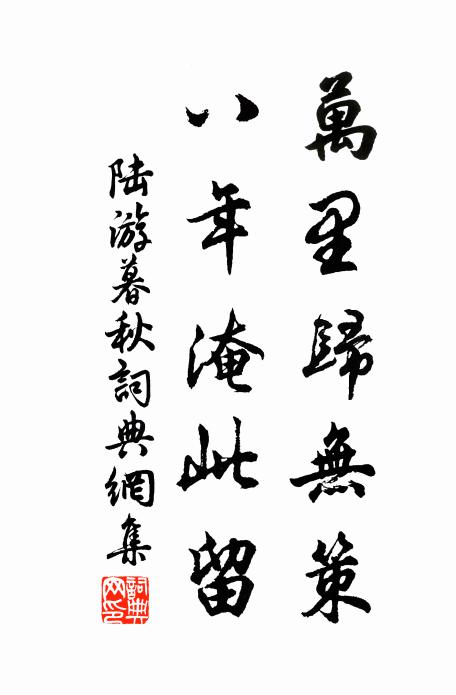 萬里歸無策
八年淹此留
陸游暮秋詞典網集
詞典網印